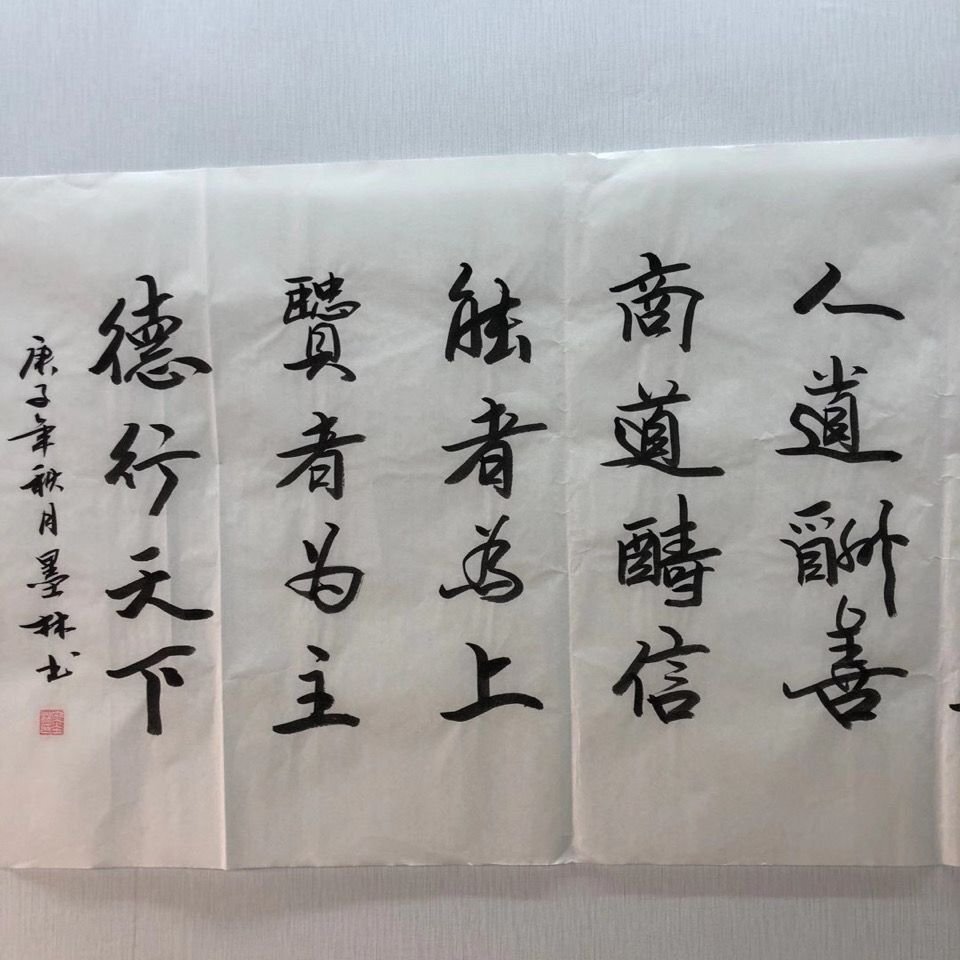 人道酬善
商道酬信
能者為上
賢者为主
德行天下
庚子年秋月墨林书